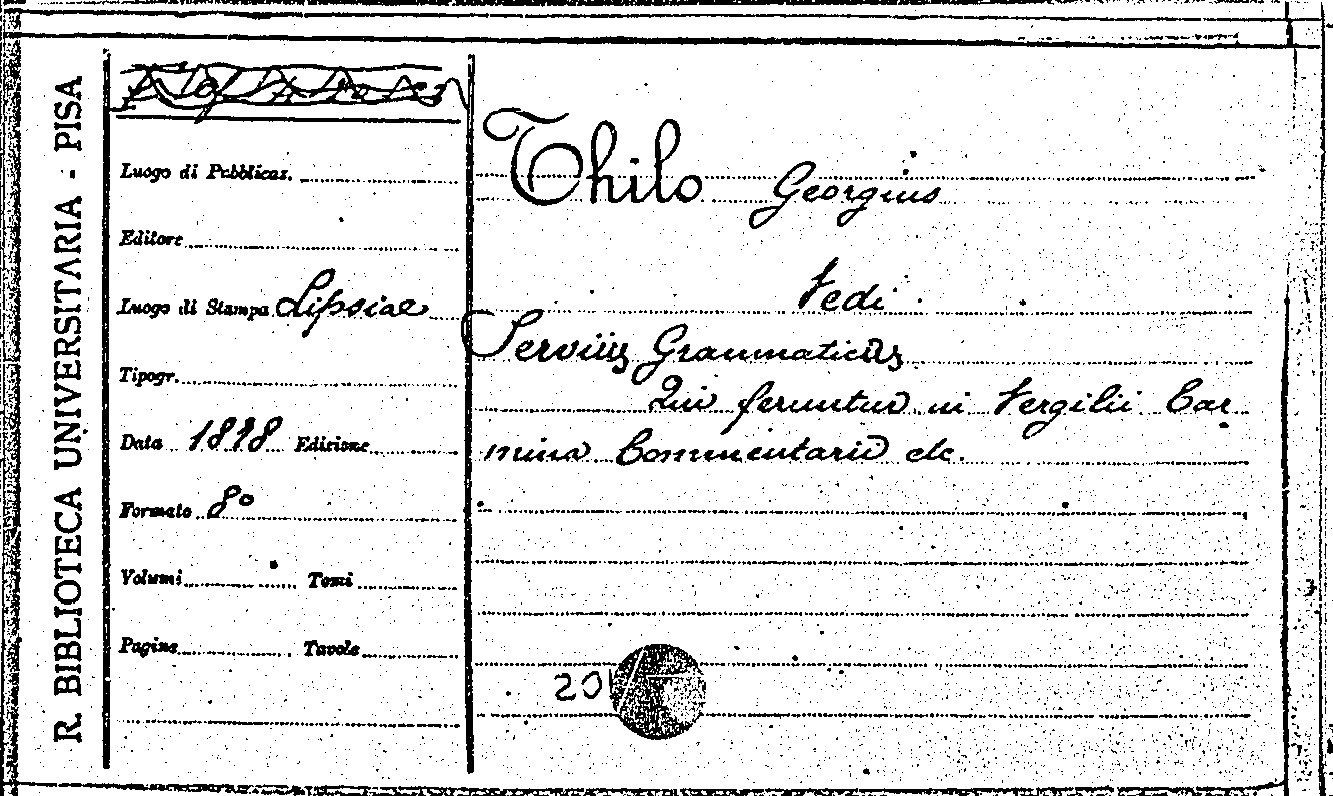 R. BIBLIOTECA UNIVERSITARIA - PISA
Luogo di Pubblicaz.
Editore
Luogo di Stampa Lipsiae
Tipogr.
Data 1898 Edizione
Formato 8°
Volumi Tomi
Pagine Tavole
Thilo Georgius
Vedi
Servius Grammaticus
Qui feruntur in Vergilii Car
mina Commentarii etc.
20